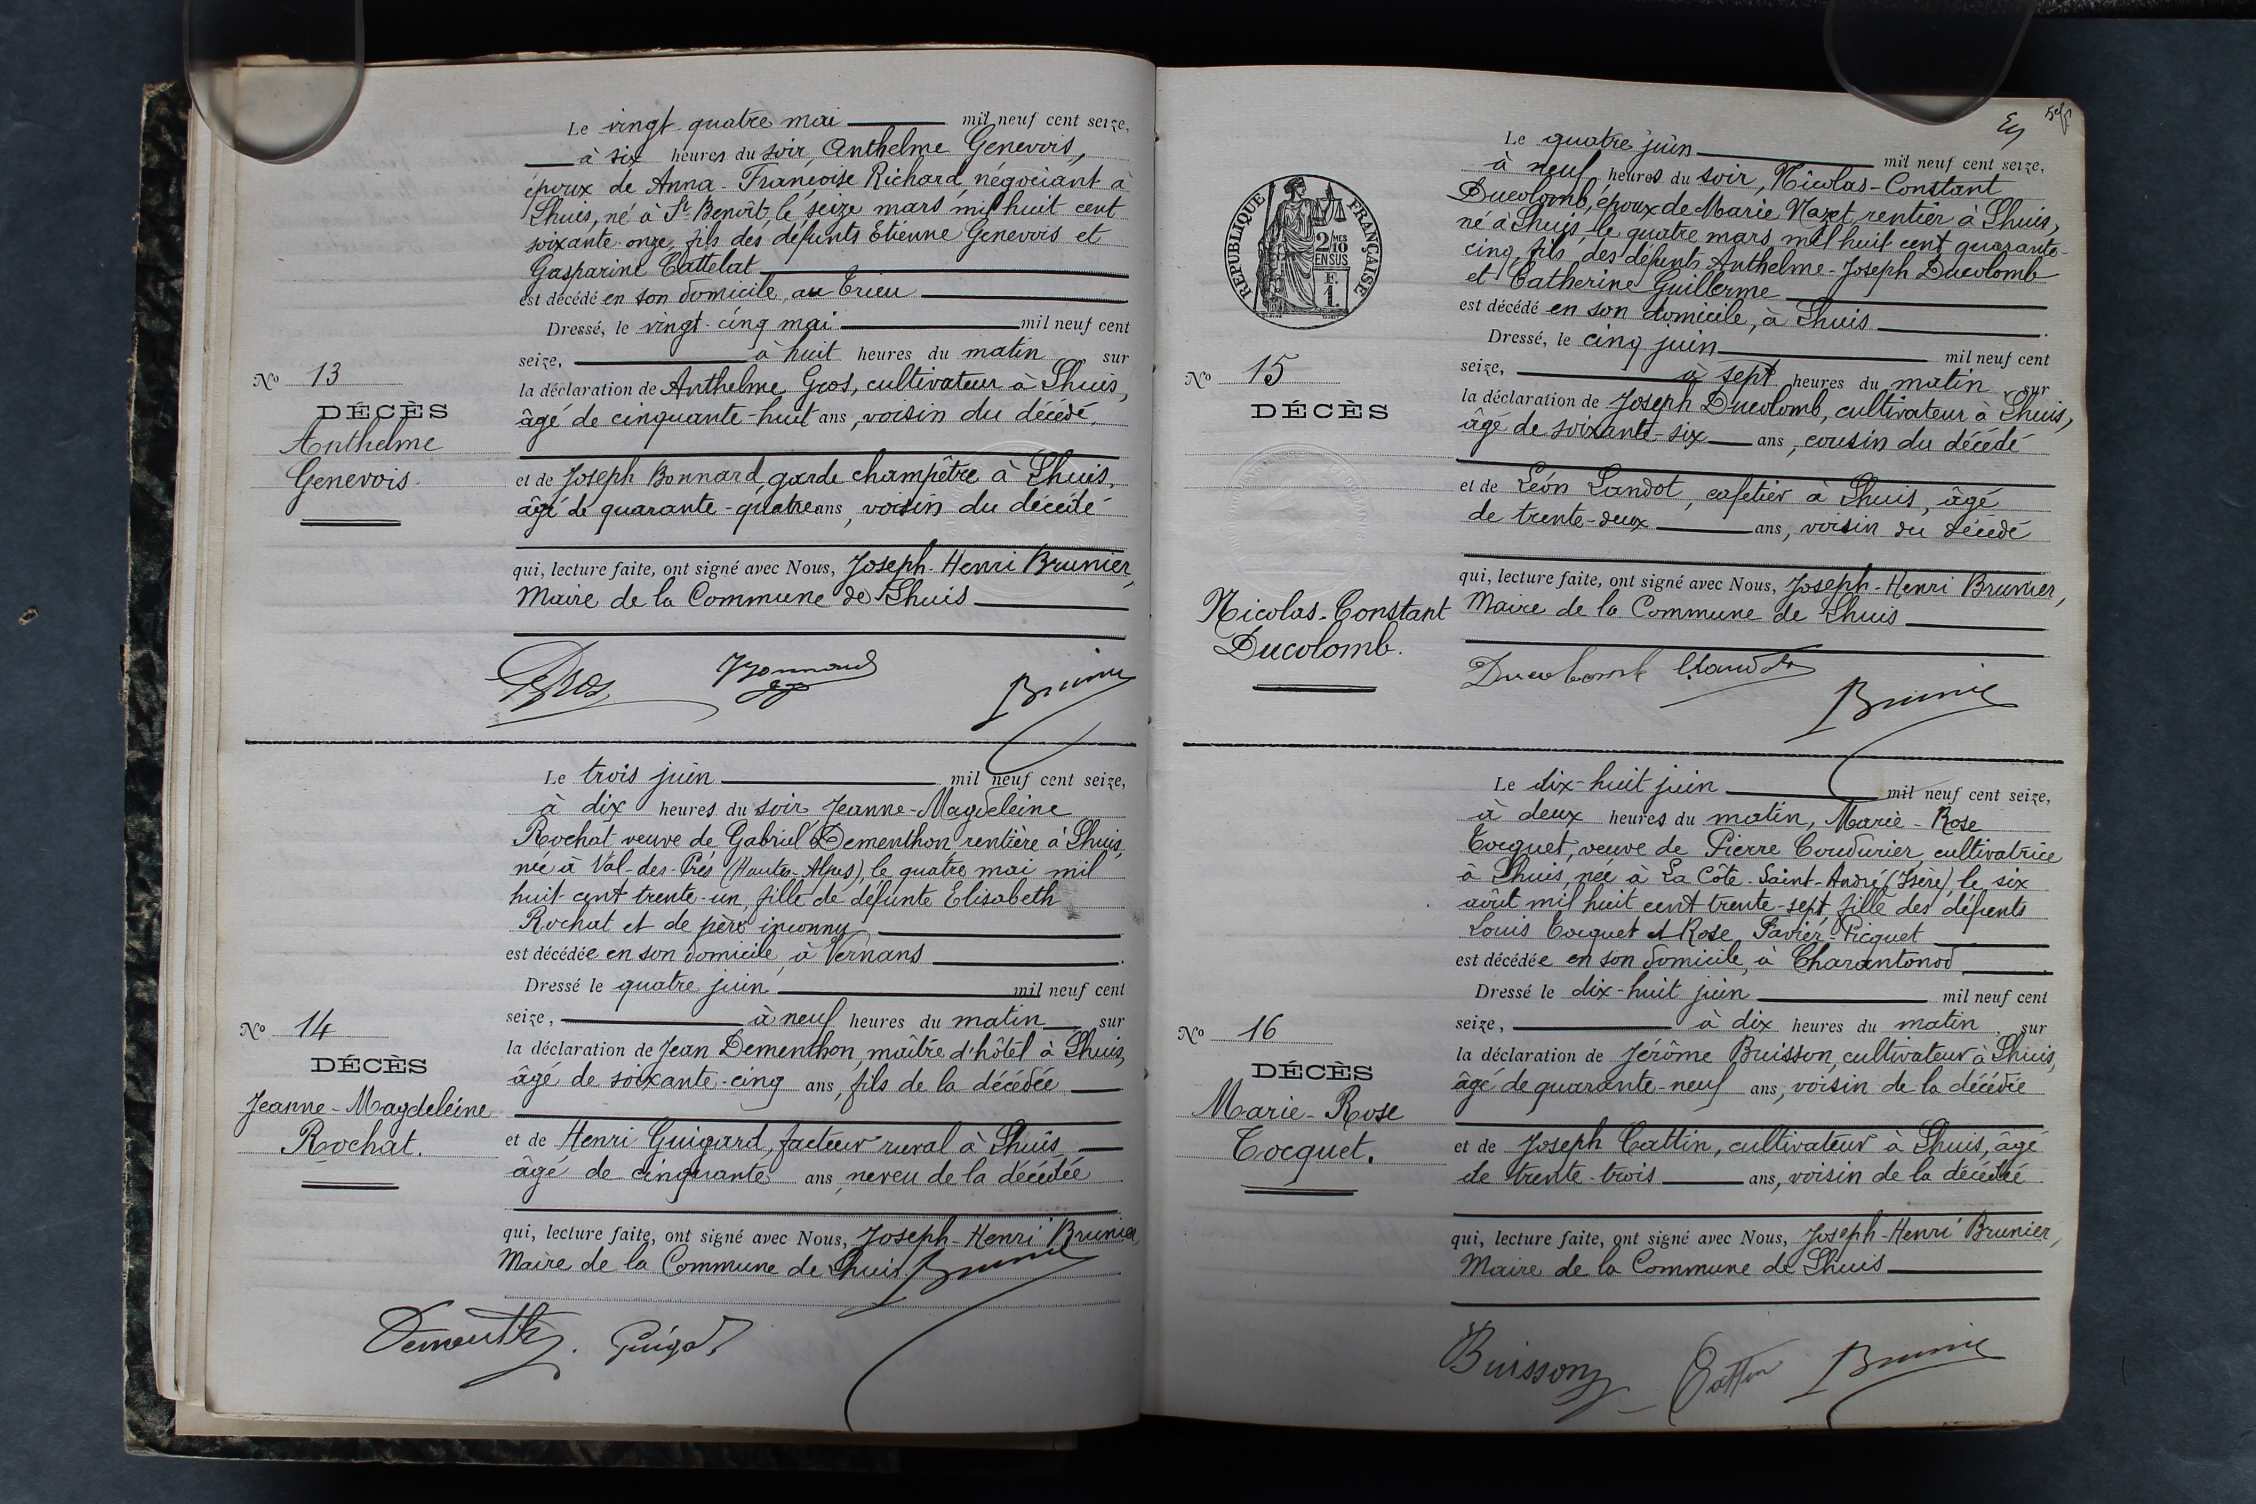 Le vingt-quatre mai mil neuf cent seize,
à six heures du soir, Anthelme Genevois,
époux de Anna-Françoise Richard, négociant à
Lhuis, né à St-Benoît, le seize mars mil huit cent
soixante-onze, fils des défunts Étienne Genevois et
Gasparine Cattelat
est décédé en son domicile, au Crieu
Dressé, le vingt-cinq mai mil neuf cent
seize, à huit heures du matin sur
No 13
la déclaration de Anthelme Gros, cultivateur à Lhuis,
DÉCÈS
âgé de cinquante-huit ans, voisin du décédé.
Anthelme
Genevois.
et de Joseph Bonnard, garde champêtre à Lhuis,
âgé de quarante-quatre ans, voisin du décédé
qui, lecture faite, ont signé avec Nous, Joseph-Henri Brunier,
Maire de la Commune de Lhuis
Gros JBonnard Brunier
Le trois juin mil neuf cent seize,
à dix heures du soir, Jeanne-Magdeleine
Rochat veuve de Gabriel Dementhon rentière à Lhuis,
née à Val-des-Prés (Hautes-Alpes), le quatre mai mil
huit-cent trente-un, fille de défunte Elisabeth
Rochat et de père inconnu
est décédée en son domicile, à Vernans
Dressé le quatre juin mil neuf cent
seize, à neuf heures du matin sur
No 14
la déclaration de Jean Dementhon, maître d'hôtel à Lhuis,
DÉCÈS
âgé de soixante-cinq ans, fils de la décédée
Jeanne-Magdeleine
Rochat.
et de Henri Guigard, facteur rural à Lhuis,
âgé de cinquante ans, neveu de la décédée
qui, lecture faite, ont signé avec Nous, Joseph-Henri Brunier
Maire de la Commune de Lhuis. Brunier
Dementhon. Guigard
Le quatre juin mil neuf cent seize,
à neuf heures du soir, Nicolas-Constant
Ducolomb, époux de Marie Mazet, rentier à Lhuis,
né à Lhuis, le quatre mars mil huit cent quarante-
cinq, fils des défunts Anthelme-Joseph Ducolomb
et Catherine Guillerme
est décédé en son domicile, à Lhuis
RÉPUBLIQUE FRANÇAISE
2/10MES
EN SUS
F.
1.
Dressé, le cinq juin mil neuf cent
seize, à sept heures du matin sur
No 15
la déclaration de Joseph Ducolomb, cultivateur à Lhuis,
DÉCÈS
âgé de soixante-six ans, cousin du décédé
et de Léon Landot, cafetier à Lhuis, âgé
de trente-deux ans, voisin du décédé
qui, lecture faite, ont signé avec Nous, Joseph-Henri Brunier,
Nicolas-Constant
Maire de la Commune de Lhuis
Ducolomb.
Ducolomb LLandot Brunier
Le dix-huit juin mil neuf cent seize,
à deux heures du matin, Marie-Rose
Cocquet, veuve de Pierre Coudurier, cultivatrice
à Lhuis, née à La Côte-Saint-André (Isère), le six
août mil huit cent trente-sept, fille des défunts
Louis Cocquet et Rose Favier-Picquet
est décédée en son domicile, à Charantonod
Dressé le dix-huit juin mil neuf cent
seize, à dix heures du matin sur
No 16
la déclaration de Jérôme Buisson, cultivateur à Lhuis,
DÉCÈS
âgé de quarante-neuf ans, voisin de la décédée
Marie-Rose
Cocquet.
et de Joseph Cattin, cultivateur à Lhuis, âgé
de trente-trois ans, voisin de la décédée
qui, lecture faite, ont signé avec Nous, Joseph-Henri Brunier,
Maire de la Commune de Lhuis
Buisson Cattin Brunier